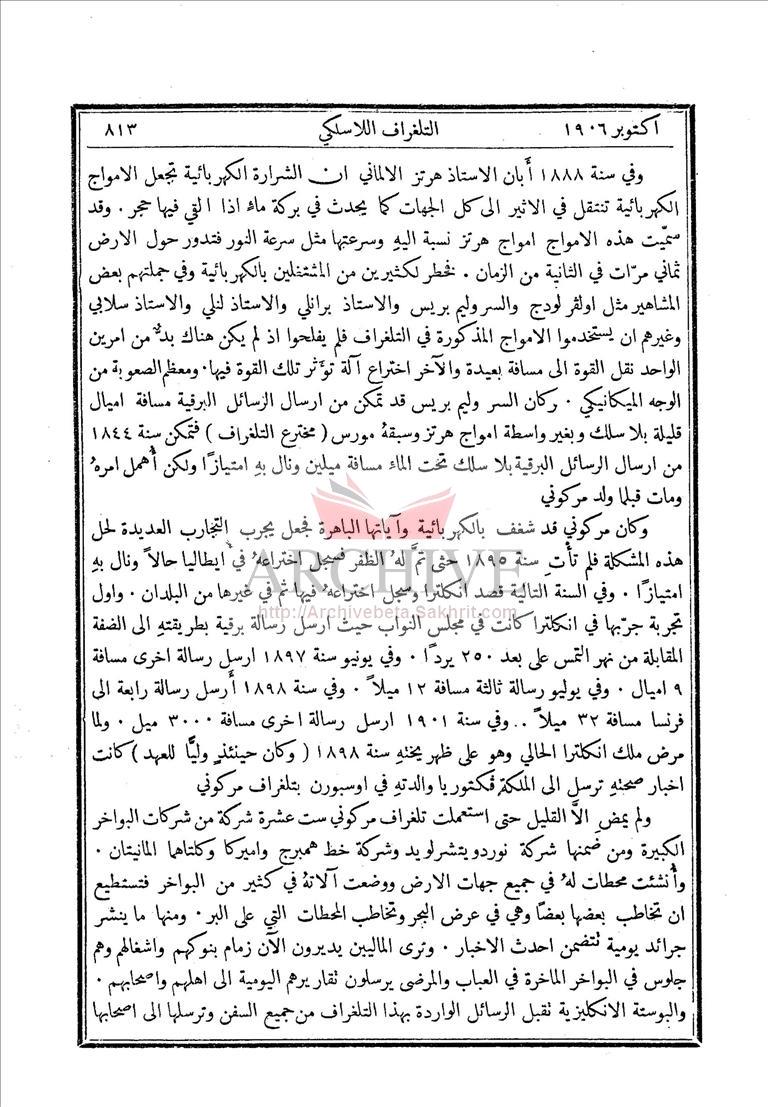 اكتوبر ١٩٠٦ التلغراف اللاسلكي ٨١٣
وفي سنة ١٨٨٨ أَبان الاستاذ هرتز الالماني ان الشرارة الكهربائية تجعل الامواج
الكهربائية تنتقل في الاثير الى كل الجهات كما يحدث في بركة ماء اذا التي فيها حجر . وقد
سمّيت هذه الامواج امواج هرتز نسبة اليهِ وسرعتها مثل سرعة النور فتدور حول الارض
ثماني مرّات في الثانية من الزمان . فخطر لكثيرين من المشتغلين بالكهربائية وفي جملتهم بعض
المشاهير مثل اولڤر لودج والسر وليم بريس والاستاذ برانلي والاستاذ لنلي والاستاذ سلابي
وغيرهم ان يستخدموا الامواج المذكورة في التلغراف فلم يفلحوا اذ لم يكن هناك بدٌّ من امرين
الواحد نقل القوة الى مسافة بعيدة والآخر اختراع آلة تؤثر تلك القوة فيها . ومعظم الصعوبة من
الوجه الميكانيكي . وكان السر وليم بريس قد تمكن من ارسال الرسائل البرقية مسافة اميال
قليلة بلا سلك وبغير واسطة امواج هرتز وسبقهُ مورس ( مخترع التلغراف ) فتمكن سنة ١٨٤٤
من ارسال الرسائل البرقية بلا سلك تحت الماء مسافة ميلين ونال بهِ امتيازًا ولكن أُهمل امرهُ
ومات قبلما ولد مركوني
وكان مركوني قد شغف بالكهربائية وآياتها الباهرة فجعل يجرب التجارب العديدة لحل
هذه المشكلة فلم تأتِ سنة ١٨٩٥ حتى تمَّ لهُ الظفر فسجل اختراعهُ في ايطاليا حالاً ونال بهِ
امتيازًا . وفي السنة التالية قصد انكلترا وسجل اختراعهُ فيها ثم في غيرها من البلدان . واول
تجربة جرّبها في انكلترا كانت في مجلس النواب حيث ارسل رسالة برقية بطريقتهِ الى الضفة
المقابلة من نهر التمس على بعد ٢٥٠ يردًا . وفي يونيو سنة ١٨٩٧ ارسل رسالة اخرى مسافة
٩ اميال . وفي يوليو رسالة ثالثة مسافة ١٢ ميلاً . وفي سنة ١٨٩٨ أَرسل رسالة رابعة الى
فرنسا مسافة ٣٢ ميلاً .. وفي سنة ١٩٠١ ارسل رسالة اخرى مسافة ٣٠٠٠ ميل . ولما
مرض ملك انكلترا الحالي وهو على ظهر يختهِ سنة ١٨٩٨ ( وكان حينئذٍ وليًّا للعهد ) كانت
اخبار صحتهِ ترسل الى الملكة ڤكتوريا والدتهِ في اوسبورن بتلغراف مركوني
ولم يمضِ الاَّ القليل حتى استعملت تلغراف مركوني ست عشرة شركة من شركات البواخر
الكبيرة ومن ضمنها شركة نوردويتشرلويد وشركة خط همبرج واميركا وكلتاهما المانيتان .
وأُنشئت محطات لهُ في جميع جهات الارض ووضعت آلاتهُ في كثير من البواخر فتستطيع
ان تخاطب بعضها بعضًا وهي في عرض البحر وتخاطب المحطات التي على البر . ومنها ما ينشر
جرائد يومية تتضمن احدث الاخبار . وترى الماليين يديرون الآن زمام بنوكهم واشغالهم وهم
جلوس في البواخر الماخرة في العباب والمرضى يرسلون تقاريرهم اليومية الى اهلهم واصحابهم .
والبوستة الانكليزية تقبل الرسائل الواردة بهذا التلغراف من جميع السفن وترسلها الى اصحابها
ARCHIVE
http://Archivebeta.Sakhrit.com